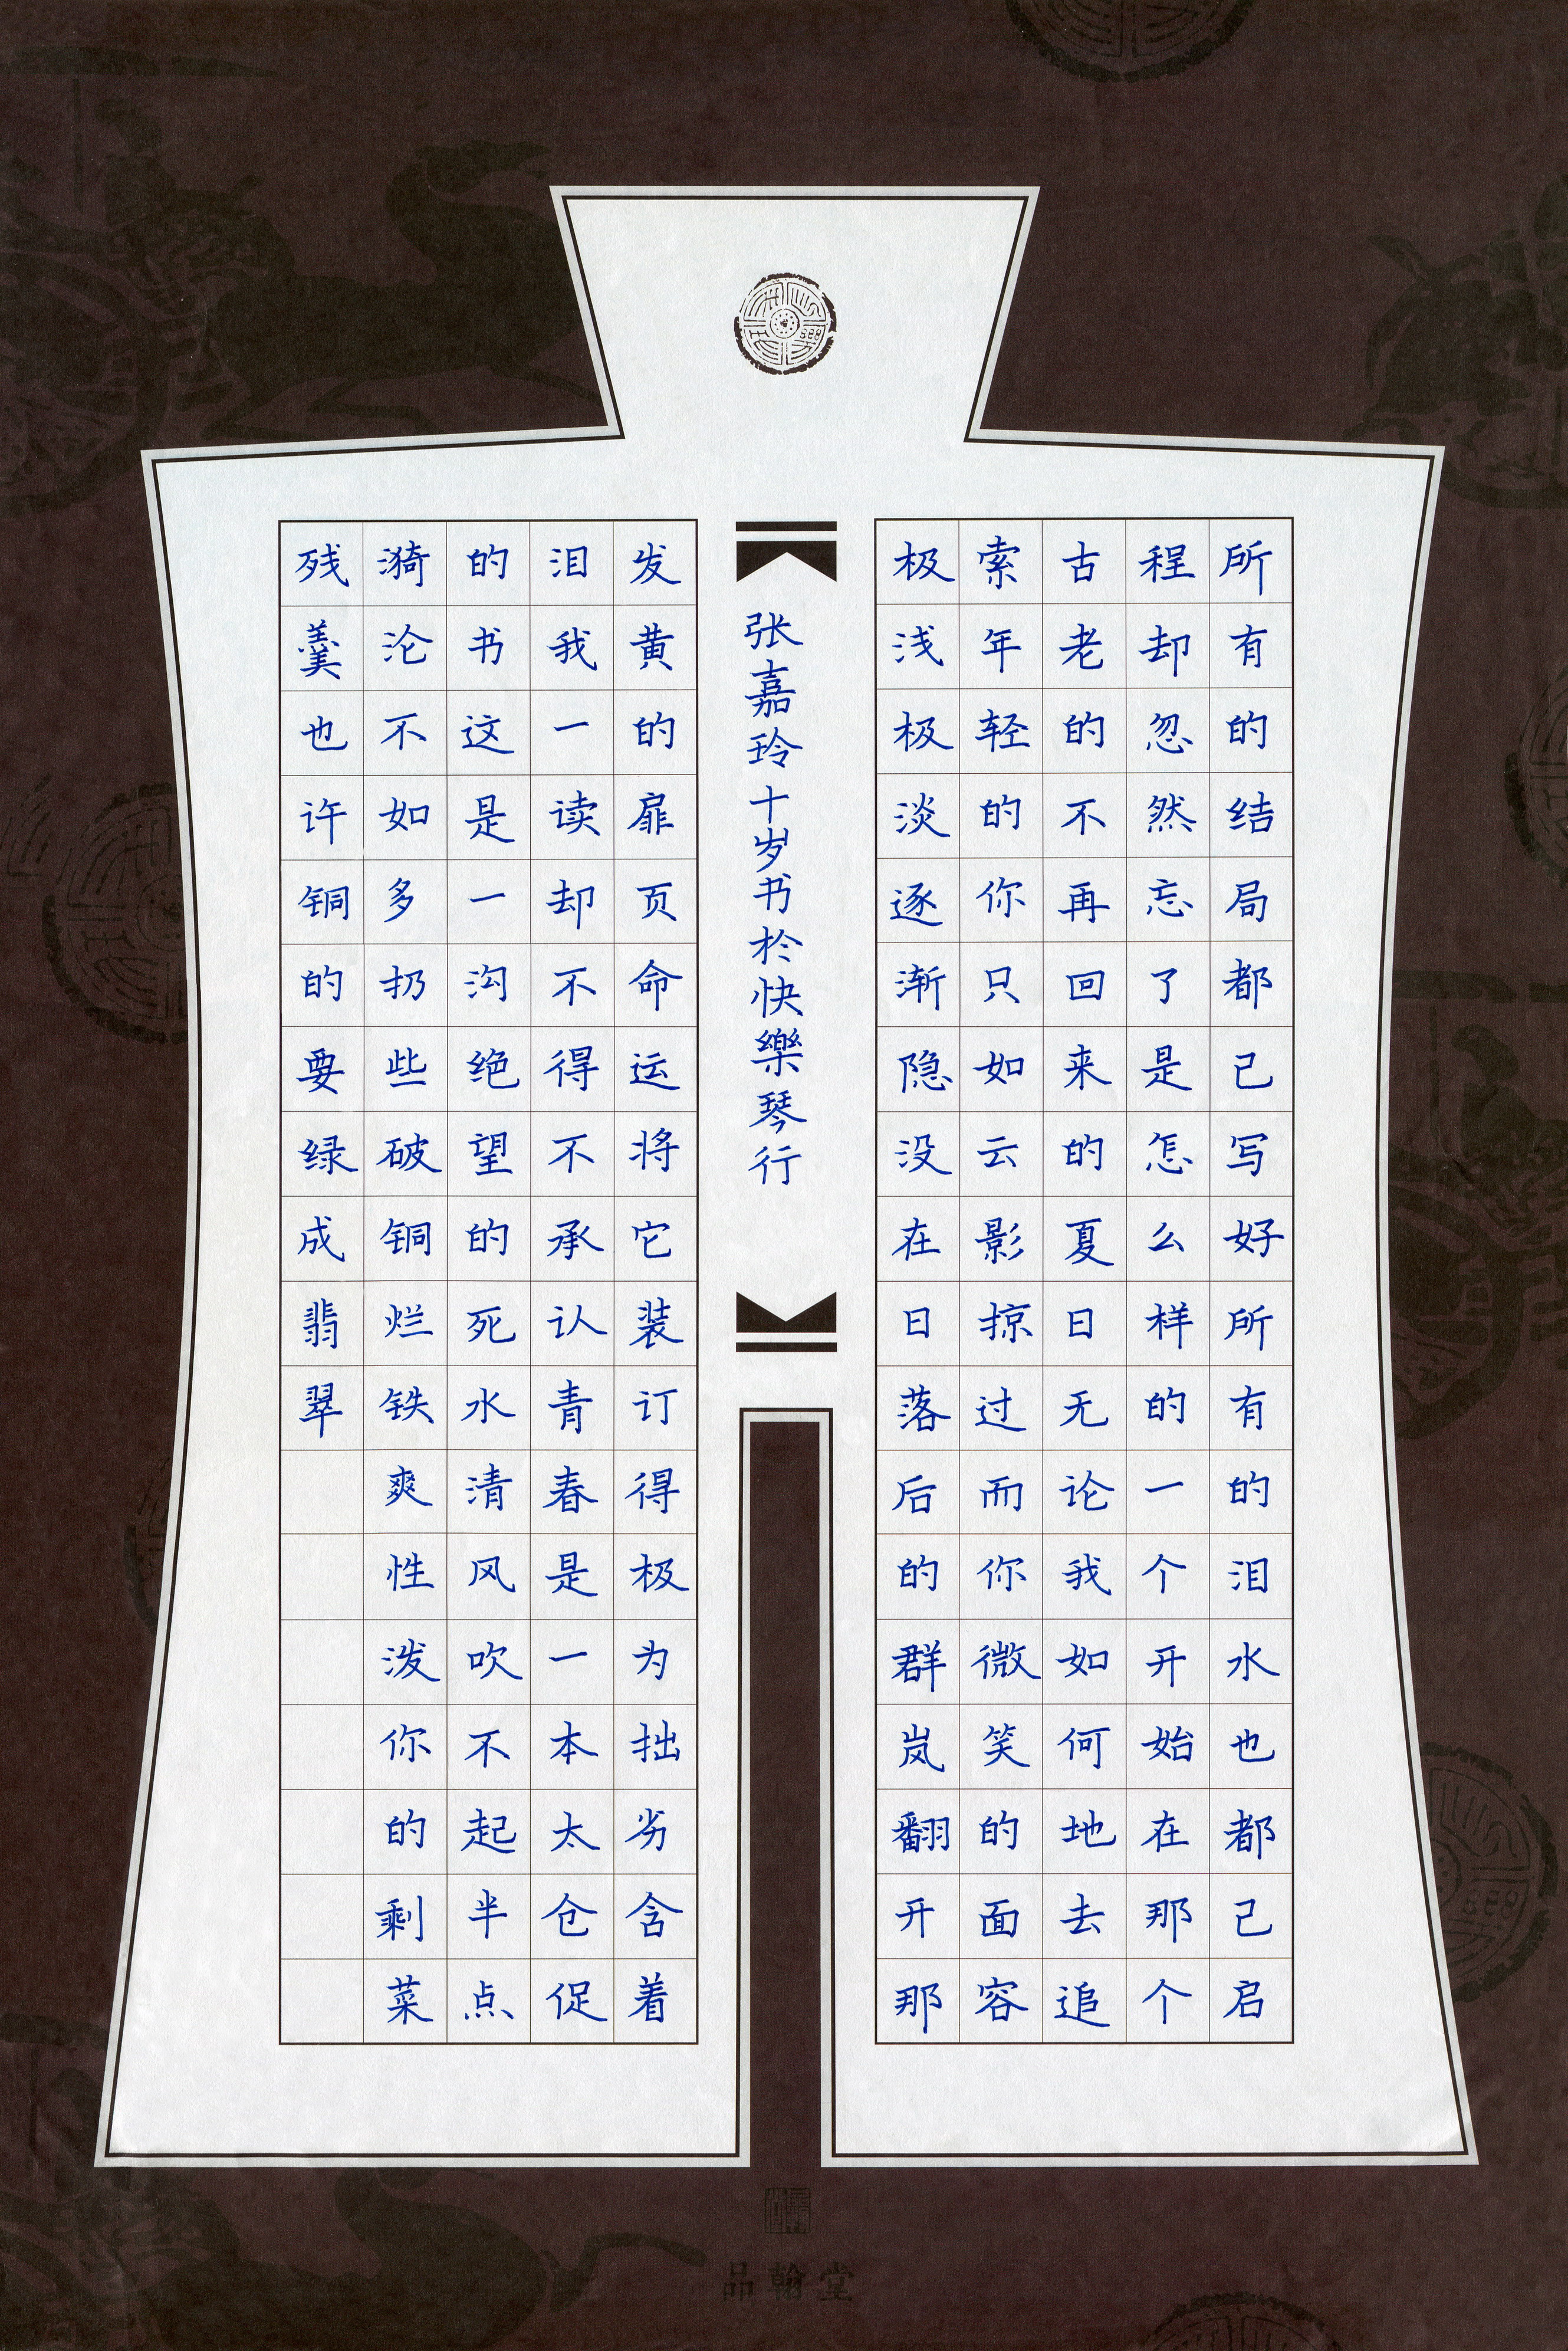 所有的结局都己写好所有的泪水也都己启
程却忽然忘了是怎么样的一个开始在那个
古老的不再回来的夏日无论我如何地去追
索年轻的你只如云影掠过而你微笑的面容
极浅极淡逐渐隐没在日落后的群岚翻开那
张嘉玲十岁书於快樂琴行
发黄的扉页命运将它装订得极为拙劣含着
泪我一读却不得不承认青春是一本太仓促
的书这是一沟绝望的死水清风吹不起半点
漪沦不如多扔些破铜烂铁爽性泼你的剩菜
残羹也许铜的要绿成翡翠
品翰堂